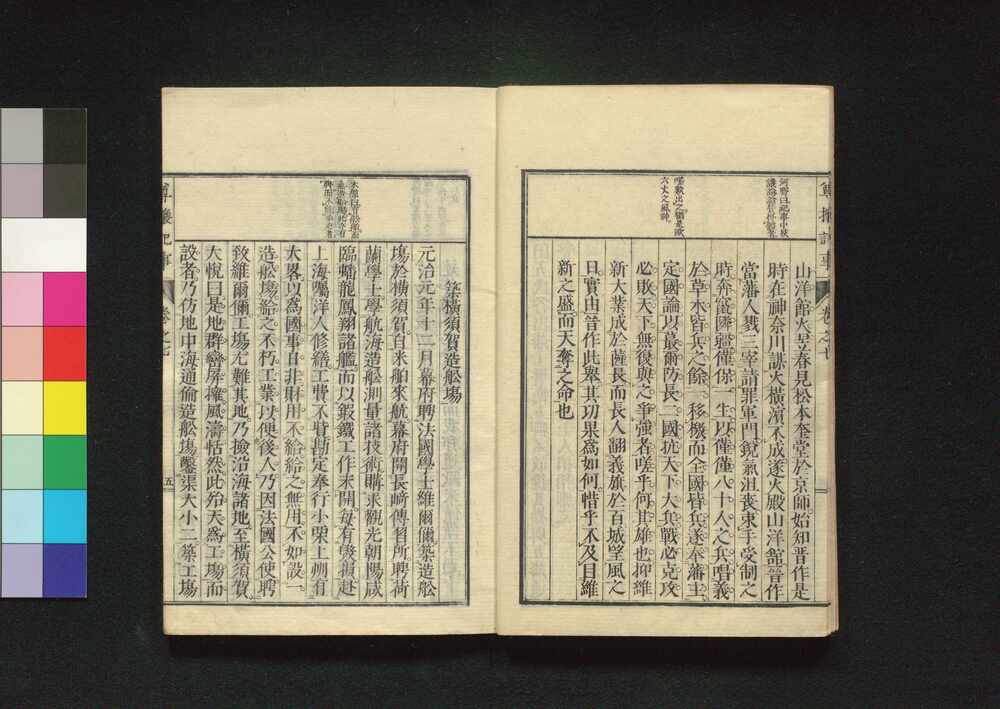 山洋館火是春見松本奎堂於京師始知晋作是
時在神奈川謀火橫濱不成遂火殿山洋館晉作
當藩人戮三宰請罪軍門銳氣沮喪束手受制之
時奔竄隣疆僅保一生以僅僅八十人之兵唱義
於草木皆兵之餘一移檄而全國皆兵遂奉藩主
定國論以蕞爾防長二國抗天下大兵戰必克攻
必敗天下無復與之爭強者嗟乎何其雄也抑維
新大業成於薩長而長人翻義旗於百城望風之
日實由晉作此舉其功果爲如何惜乎不及目維
新之盛而天奪之命也
築橫須賀造舩塲
元治元年十二月幕府聘法國學士維爾儞築造舩
塲於橫須賀自米舶來航幕府開長﨑傳習所聘荷
蘭學士學航海造舩測量諸技術購求觀光朝陽咸
臨蟠龍鳳翔諸艦而以鍜鐵工作未開每有毀損赴
上海囑洋人修繕工費不貲勘定奉行小栗上州有
大畧以爲國事自非財用不給給之無用不如設一
造舩塲給之不朽工業以便後人乃因法國公使聘
致維爾儞工塲尤難其地乃撿沿海諸地至橫須賀
大悅曰是地群巒屏擁風濤恬然此殆天爲工塲而
設者乃仿地中海通偷造舩塲鑿渠大小二築工塲
尊攘紀事
卷之七
五